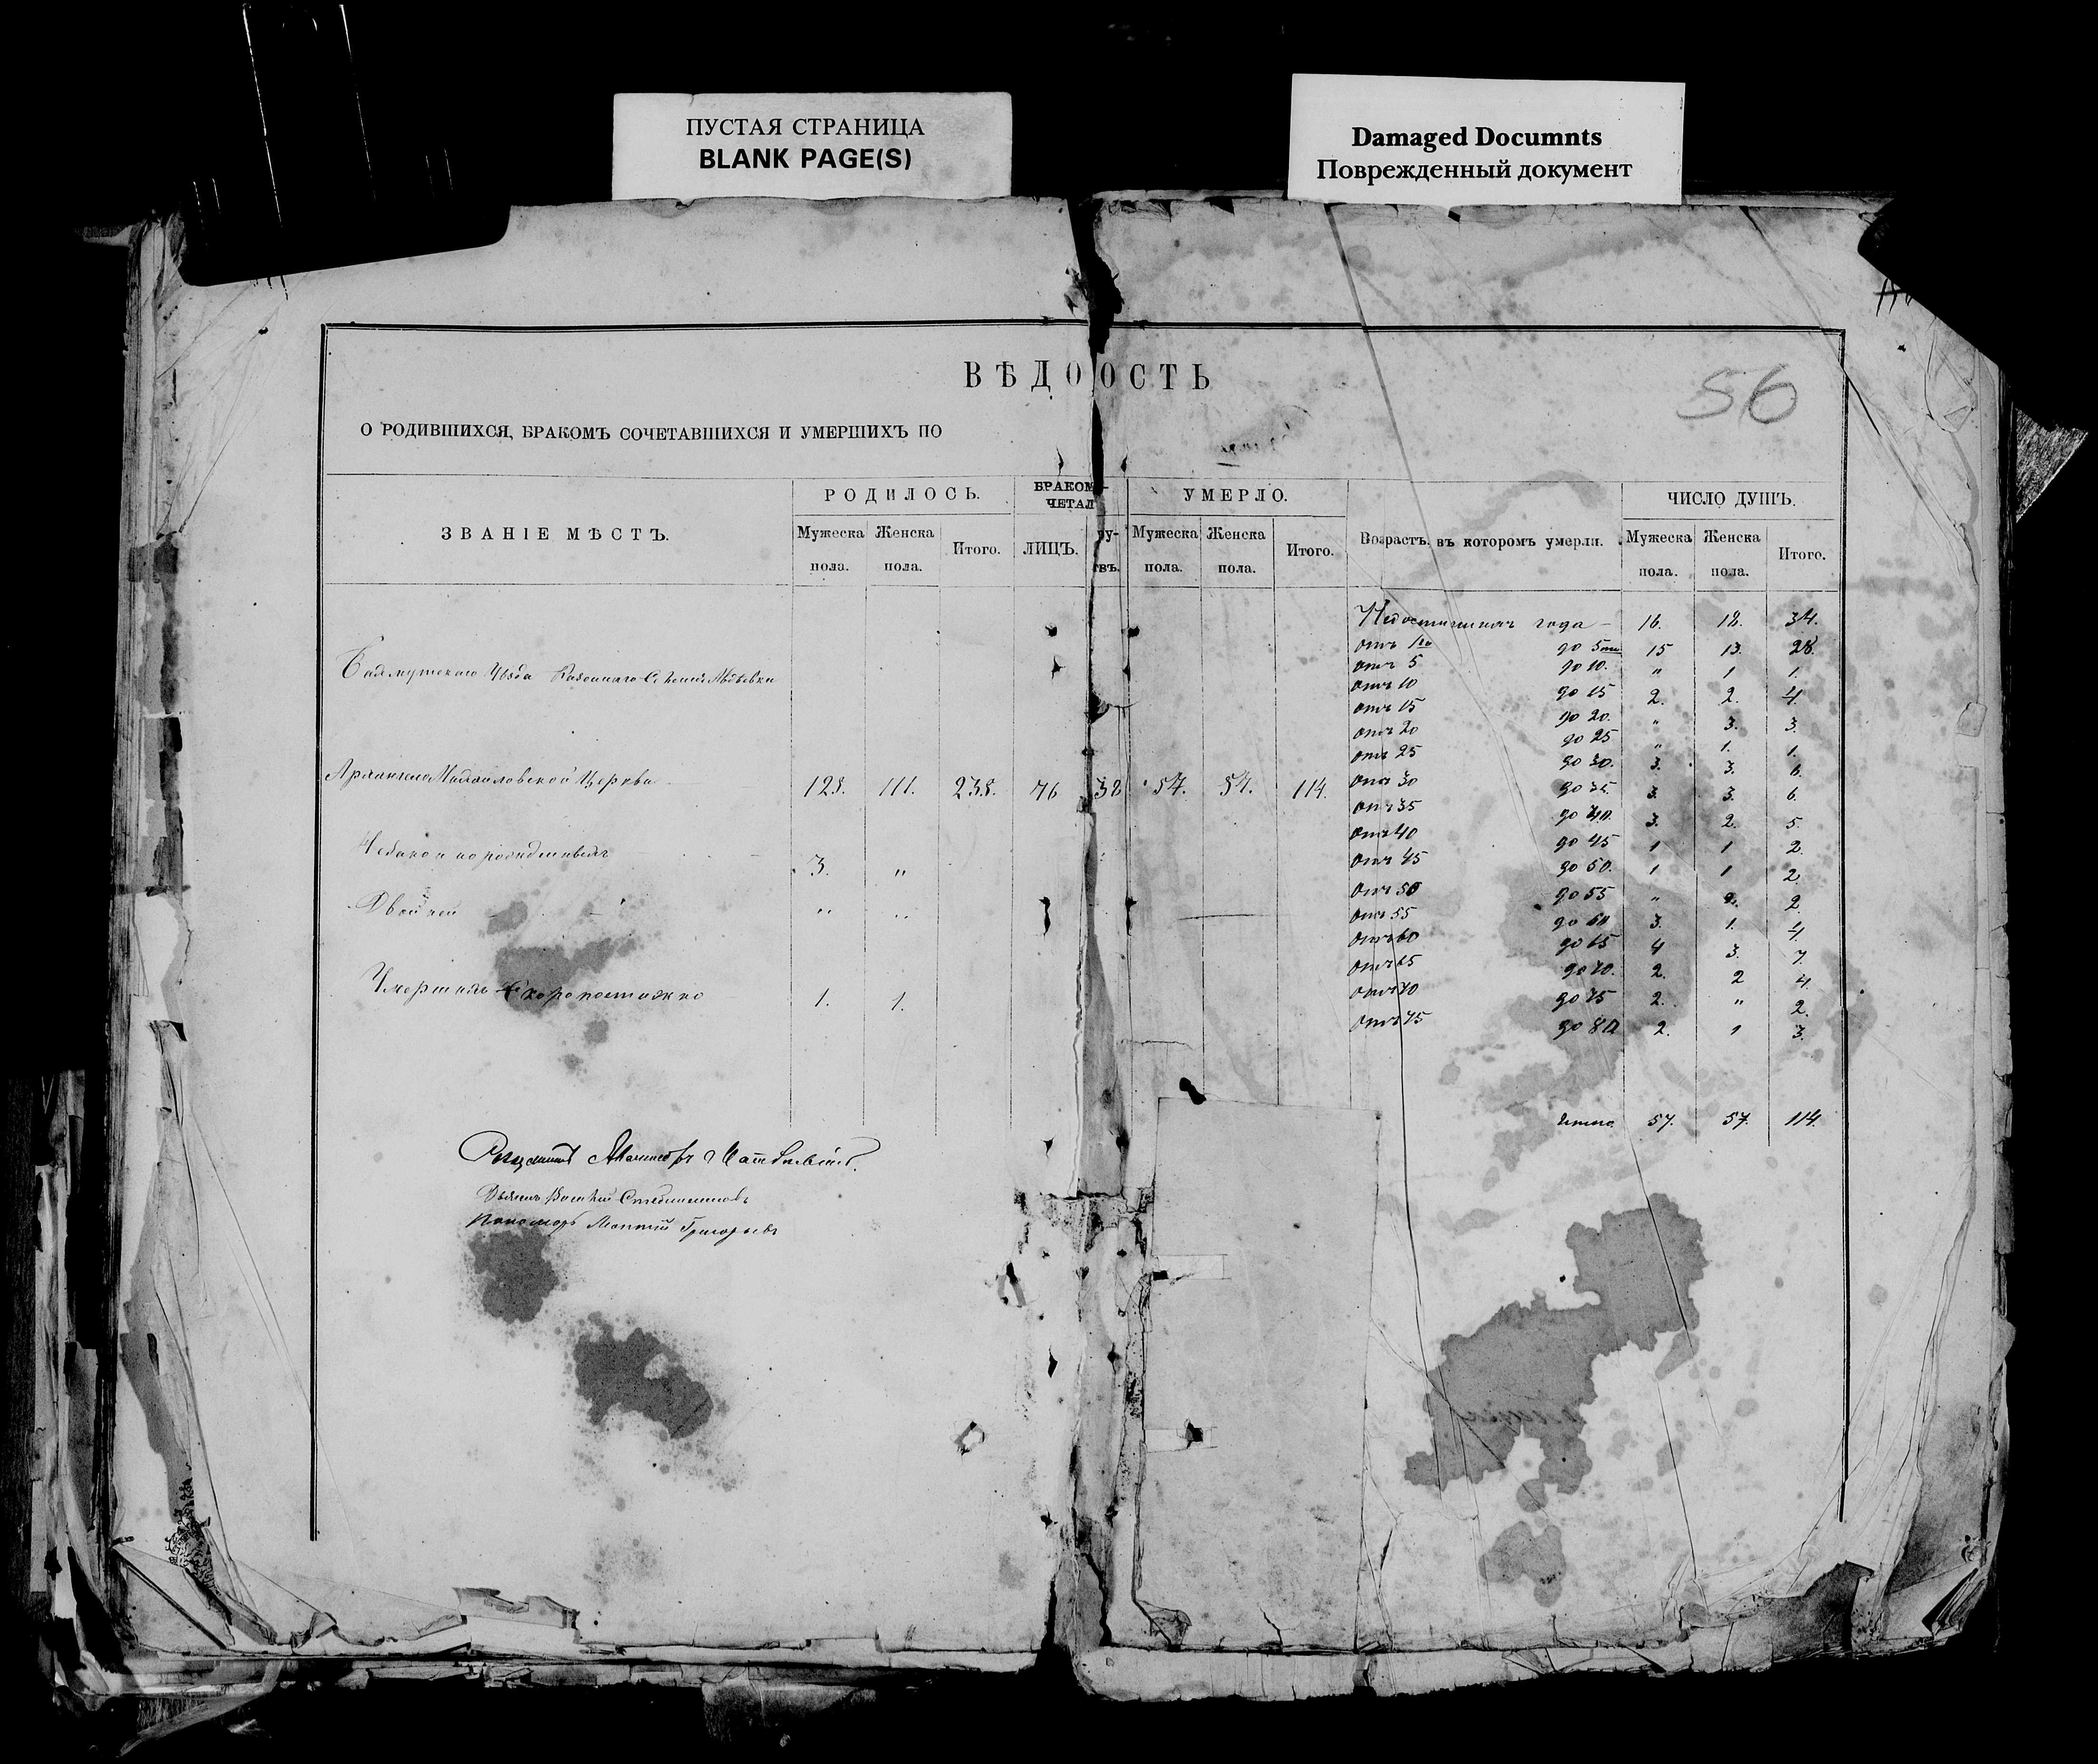 ПУСТАЯ СТРАНИЦА
BLANK PAGE(S)
Damaged Documnts
Поврежденный документ
56
ВѢДО ОСТЬ
О РОДИВШИХСЯ, БРАКОМЪ СОЧЕТАВШИХСЯ И УМЕРШИХЪ ПО
ЗВАНІЕ МѢСТЪ. РОДИЛОСЬ. БРАКОМ ЧЕТАЛ УМЕРЛО. Возрастъ, въ которомъ умерли. ЧИСЛО ДУШЪ.
Мужеска пола. Женска пола. Итого. ЛИЦЪ. ру- твъ. Мужеска пола. Женска пола. Итого. Мужеска пола. Женска пола. Итого.
Недостигшихъ года 16. 18. 34.
отъ 1го до 5ти 15 13. 28.
отъ 5 до 10. " 1 1.
отъ 10 до 15 2. 2. 4.
отъ 15 до 20. " 3. 3.
отъ 20 до 25 " 1. 1.
отъ 25 до 30. 3. 3. 6.
отъ 30 до 35. 3. 3. 6.
отъ 35 до 40. 3. 2. 5.
отъ 40 до 45 1 1 2.
отъ 45 до 50. 1 1 2.
отъ 50 до 55 " 2. 2.
отъ 55 до 60 3. 1. 4.
отъ 60 до 65 4 3. 7.
отъ 65 до 70. 2. 2 4.
отъ 70 до 75 2. " 2.
отъ 75 до 80 2. 1 3.
Итого 57. 57. 114.
Бахмутскаго Уѣзда Казеннаго Селенія Авдѣевки
Архангело Михаиловской Церкви 128. 111. 238. 76 38 57. 57. 114.
3. "
Двойней " "
Умершихъ Скоропостижно 1. 1.
Священникъ Матвѣевъ.
Дьячекъ Василій
Пономарь Григорьевъ